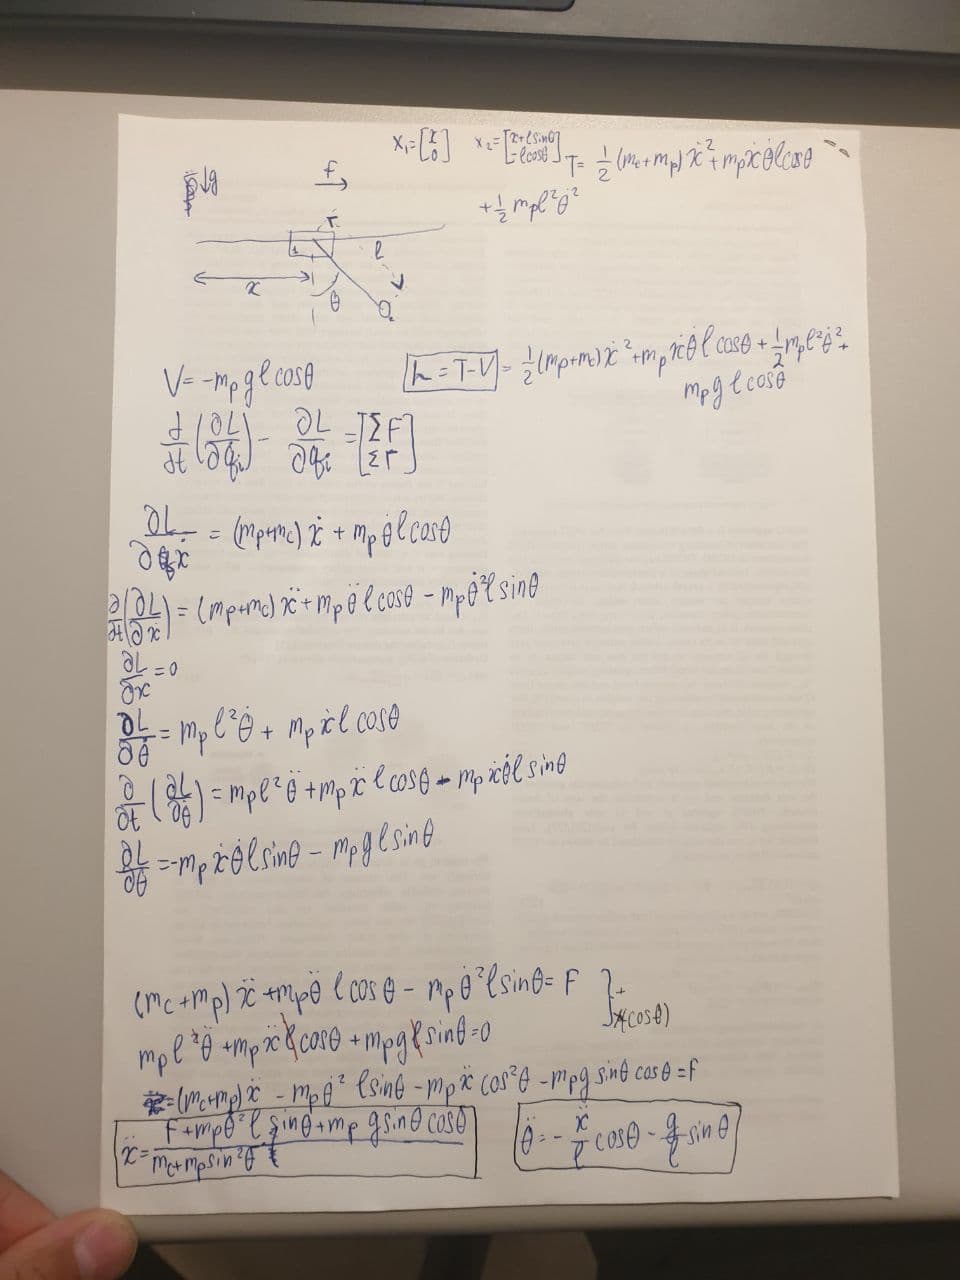 x₁=[x 0] x₂=[x+lsinθ -lcosθ] T= 1/2 (mc+mp) ẋ²+mpẋθ̇lcosθ
+1/2 mpl²θ̇²
↓g
f
l
x
θ
V= -mpglcosθ
L=T-V = 1/2(mp+mc)ẋ²+mpẋθ̇lcosθ+1/2mpl²θ̇²+
mpglcosθ
d/dt (∂L/∂q̇i) - ∂L/∂qi = [ΣF Στ]
∂L/∂ẋ = (mp+mc)ẋ + mpθ̇lcosθ
∂/∂t(∂L/∂ẋ) = (mp+mc)ẍ+mpθ̈lcosθ - mpθ̇²lsinθ
∂L/∂x =0
∂L/∂θ̇ = mpl²θ̇ + mpẋlcosθ
∂/∂t (∂L/∂θ̇) = mpl²θ̈+mpẍlcosθ - mpẋθ̇lsinθ
∂L/∂θ =-mpẋθ̇lsinθ - mpglsinθ
(mc+mp)ẍ+mpθ̈lcosθ - mpθ̇²lsinθ= F
mpl²θ̈+mpẍlcosθ+mpglsinθ=0
(mc+mp)ẍ - mpθ̇²lsinθ -mpẍcos²θ -mpgsinθcosθ=f
ẍ= (F+mpθ̇²lsinθ+mpgsinθcosθ)/(mc+mpsin²θ)
θ̈=- ẍ/l cosθ - g/l sinθ